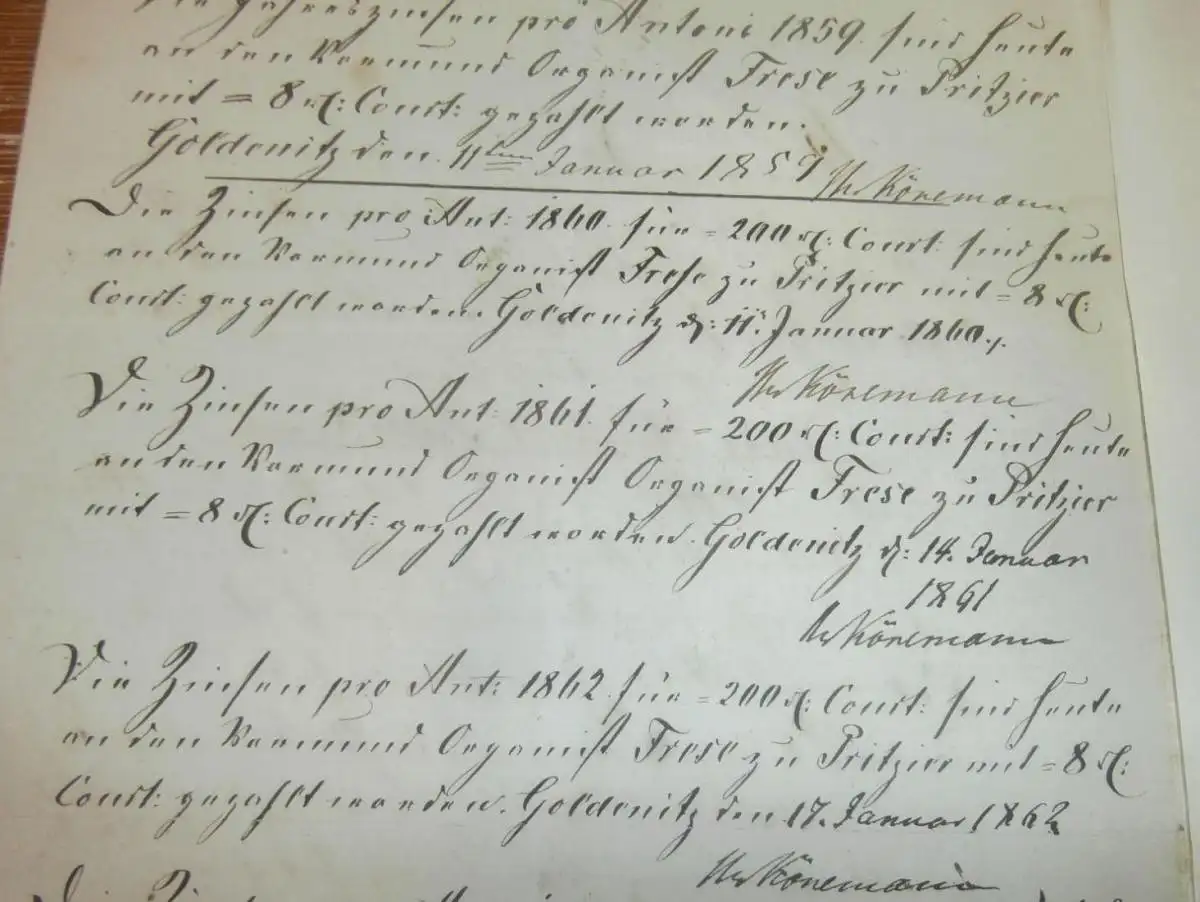 Die Jahreszinsen pro Antoni 1859. sind heute
an den Vormund Organist Frese zu Pritzier
mit = 8 rℓ: Court: gezahlt worden.
Goldenitz den 11ten Januar 1859 Könemann
Die Zinsen pro Ant: 1860. für = 200 rℓ: Court: sind heute
an den Vormund Organist Frese zu Pritzier mit = 8 rℓ:
Court: gezahlt worden. Goldenitz d: 11t Januar 1860.
Könemann
Die Zinsen pro Ant: 1861. für = 200 rℓ: Court: sind heute
an den Vormund Organist Organist Frese zu Pritzier
mit = 8 rℓ: Court: gezahlt worden. Goldenitz d: 14. Januar
1861
Könemann
Die Zinsen pro Ant: 1862. für = 200 rℓ: Court: sind heute
an den Vormund Organist Frese zu Pritzier mit = 8 rℓ:
Court: gezahlt worden. Goldenitz den 17. Januar 1862
Könemann
Die Zinsen